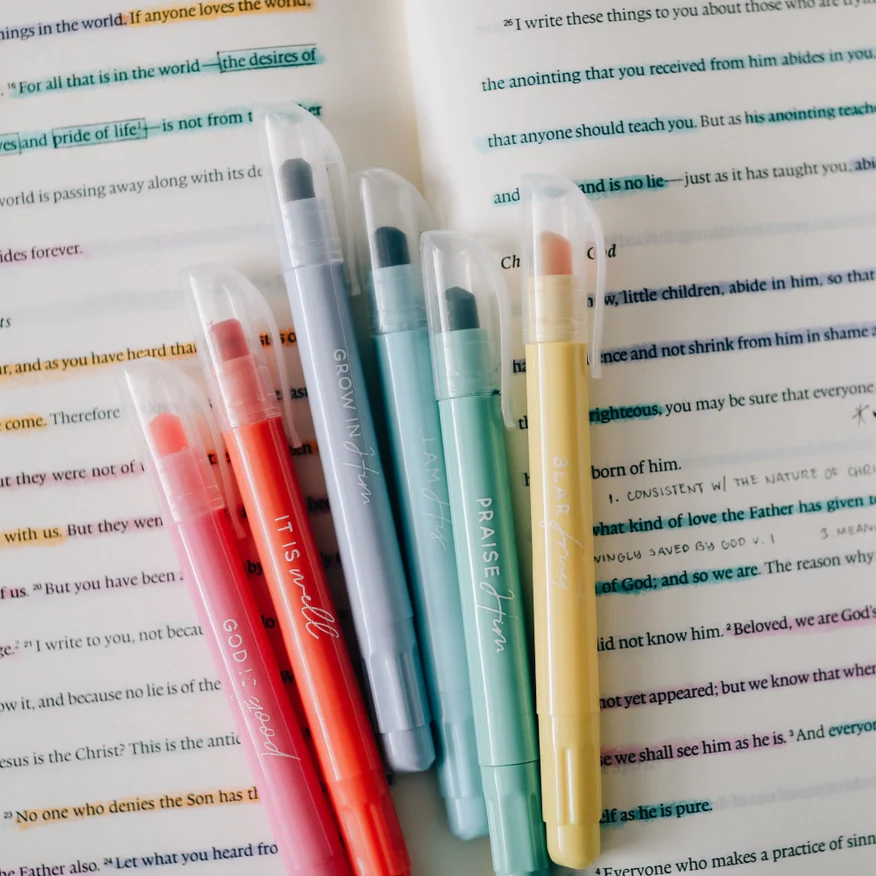 things in the world. If anyone loves the world,
16 For all that is in the world—the desires of
and pride of life—is not from
world is passing away along with its
forever.
and as you have heard that
come. Therefore
but they were not of
with us. But they
of us. 20 But you have been
21 I write to you, not
it, and because no lie is of the
Jesus is the Christ? This is the
23 No one who denies the Son has
the Father also. 24 Let what you heard
26 I write these things to you about those who are
the anointing that you received from him abides in you,
that anyone should teach you. But as his anointing
and and is no lie—just as it has taught you,
God
little children, abide in him, so that
and not shrink from him in shame
righteous, you may be sure that everyone
born of him.
1. CONSISTENT W/ THE NATURE OF
what kind of love the Father has given
SAVED BY GOD V. 1 3
of God; and so we are. The reason why
did not know him. 2 Beloved, we are God's
not yet appeared; but we know that
we shall see him as he is. 3 And
as he is pure.
4 Everyone who makes a practice of
GOD IS good
IT IS well
GROW IN Him
I AM His
PRAISE Him
BEAR fruit